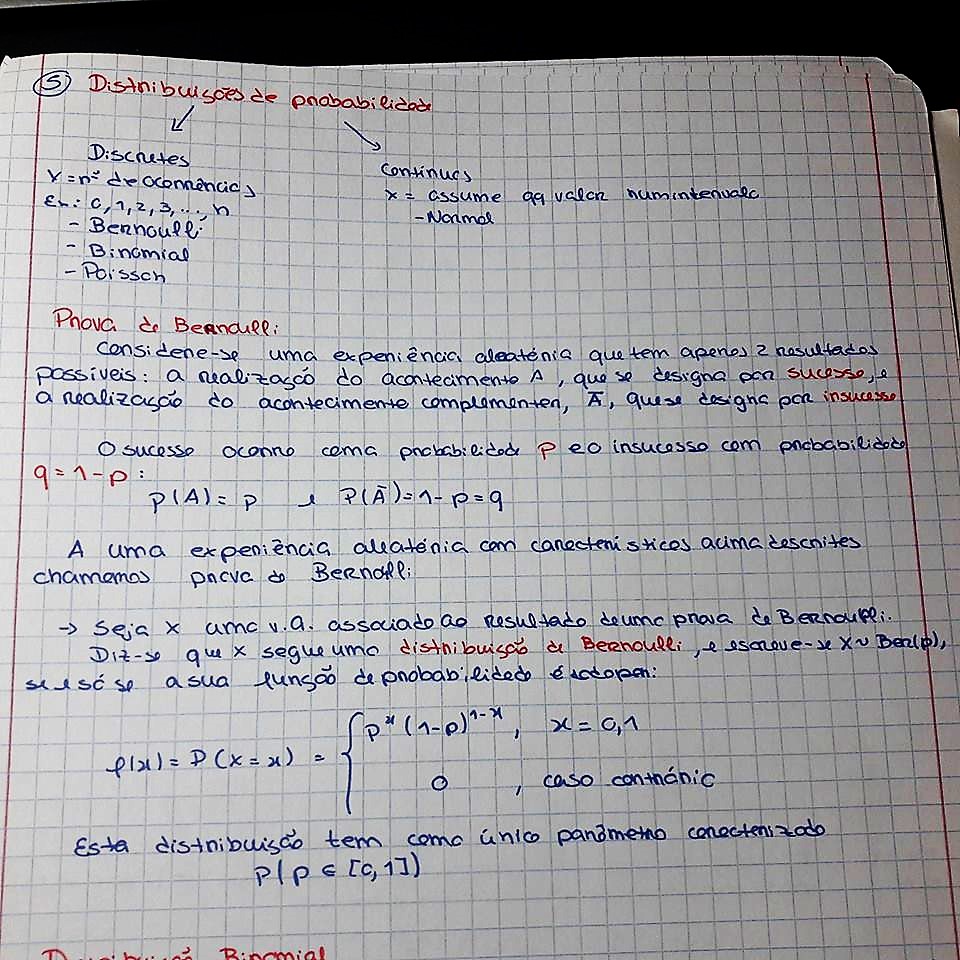 5 Distribuições de probabilidade
Discretas
X = nº de ocorrências
Ex.: 0, 1, 2, 3, ..., n
- Bernoulli
- Binomial
- Poisson
Contínuas
x = assume qq valor num intervalo
- Normal
Prova de Bernoulli:
Considere-se uma experiência aleatória que tem apenas 2 resultados
possíveis: a realização do acontecimento A, que se designa por sucesso, e
a realização do acontecimento complementar, Ā, que se designa por insucesso
O sucesso ocorre com a probabilidade p e o insucesso com probabilidade
q = 1 - p :
P(A) = p e P(Ā) = 1 - p = q
A uma experiência aleatória com características acima descrites
chamamos prova de Bernoulli
→ Seja X uma v.a. associado ao resultado de uma prova de Bernoulli.
Diz-se que X segue uma distribuição de Bernoulli, e escreve-se X ~ Ber(p),
se e só se a sua função de probabilidade é dada por:
f(x) = P(X = x) = { p^x (1-p)^{1-x}, x = 0, 1
0 , caso contrário
Esta distribuição tem como único parâmetro caracterizado
p (p ∈ [0, 1])
Distribuição Binomial